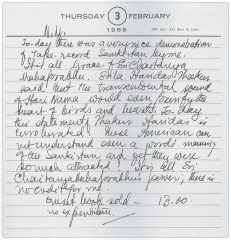 THURSDAY 3 FEBRUARY
1966
N.Y.
To-day there was a very nice demonstration
of Tape record Sankirtan Hymn.
It is all Grace of Sri Chaitanya
Mahaprabhu. Srila Haridas Thakur
said that the Transcendental sound
of Hari Nama would even purify the
heart of birds and beasts. To-day
this statement of Thakur Haridas is
corroborated. These American can
not understand even a words meaning
of the Sankirtan and yet they were
so much attracted! It is all Sri
Chaitanya Mahaprabhus power, there is
no credit for me.
One set book sold 13.00.
no expenditure.